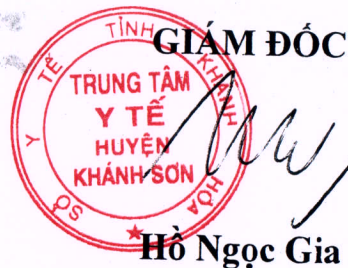 GIÁM ĐỐC
SỞ Y TẾ TỈNH KHÁNH HÒA
TRUNG TÂM
Y TẾ
HUYỆN
KHÁNH SƠN
Hồ Ngọc Gia